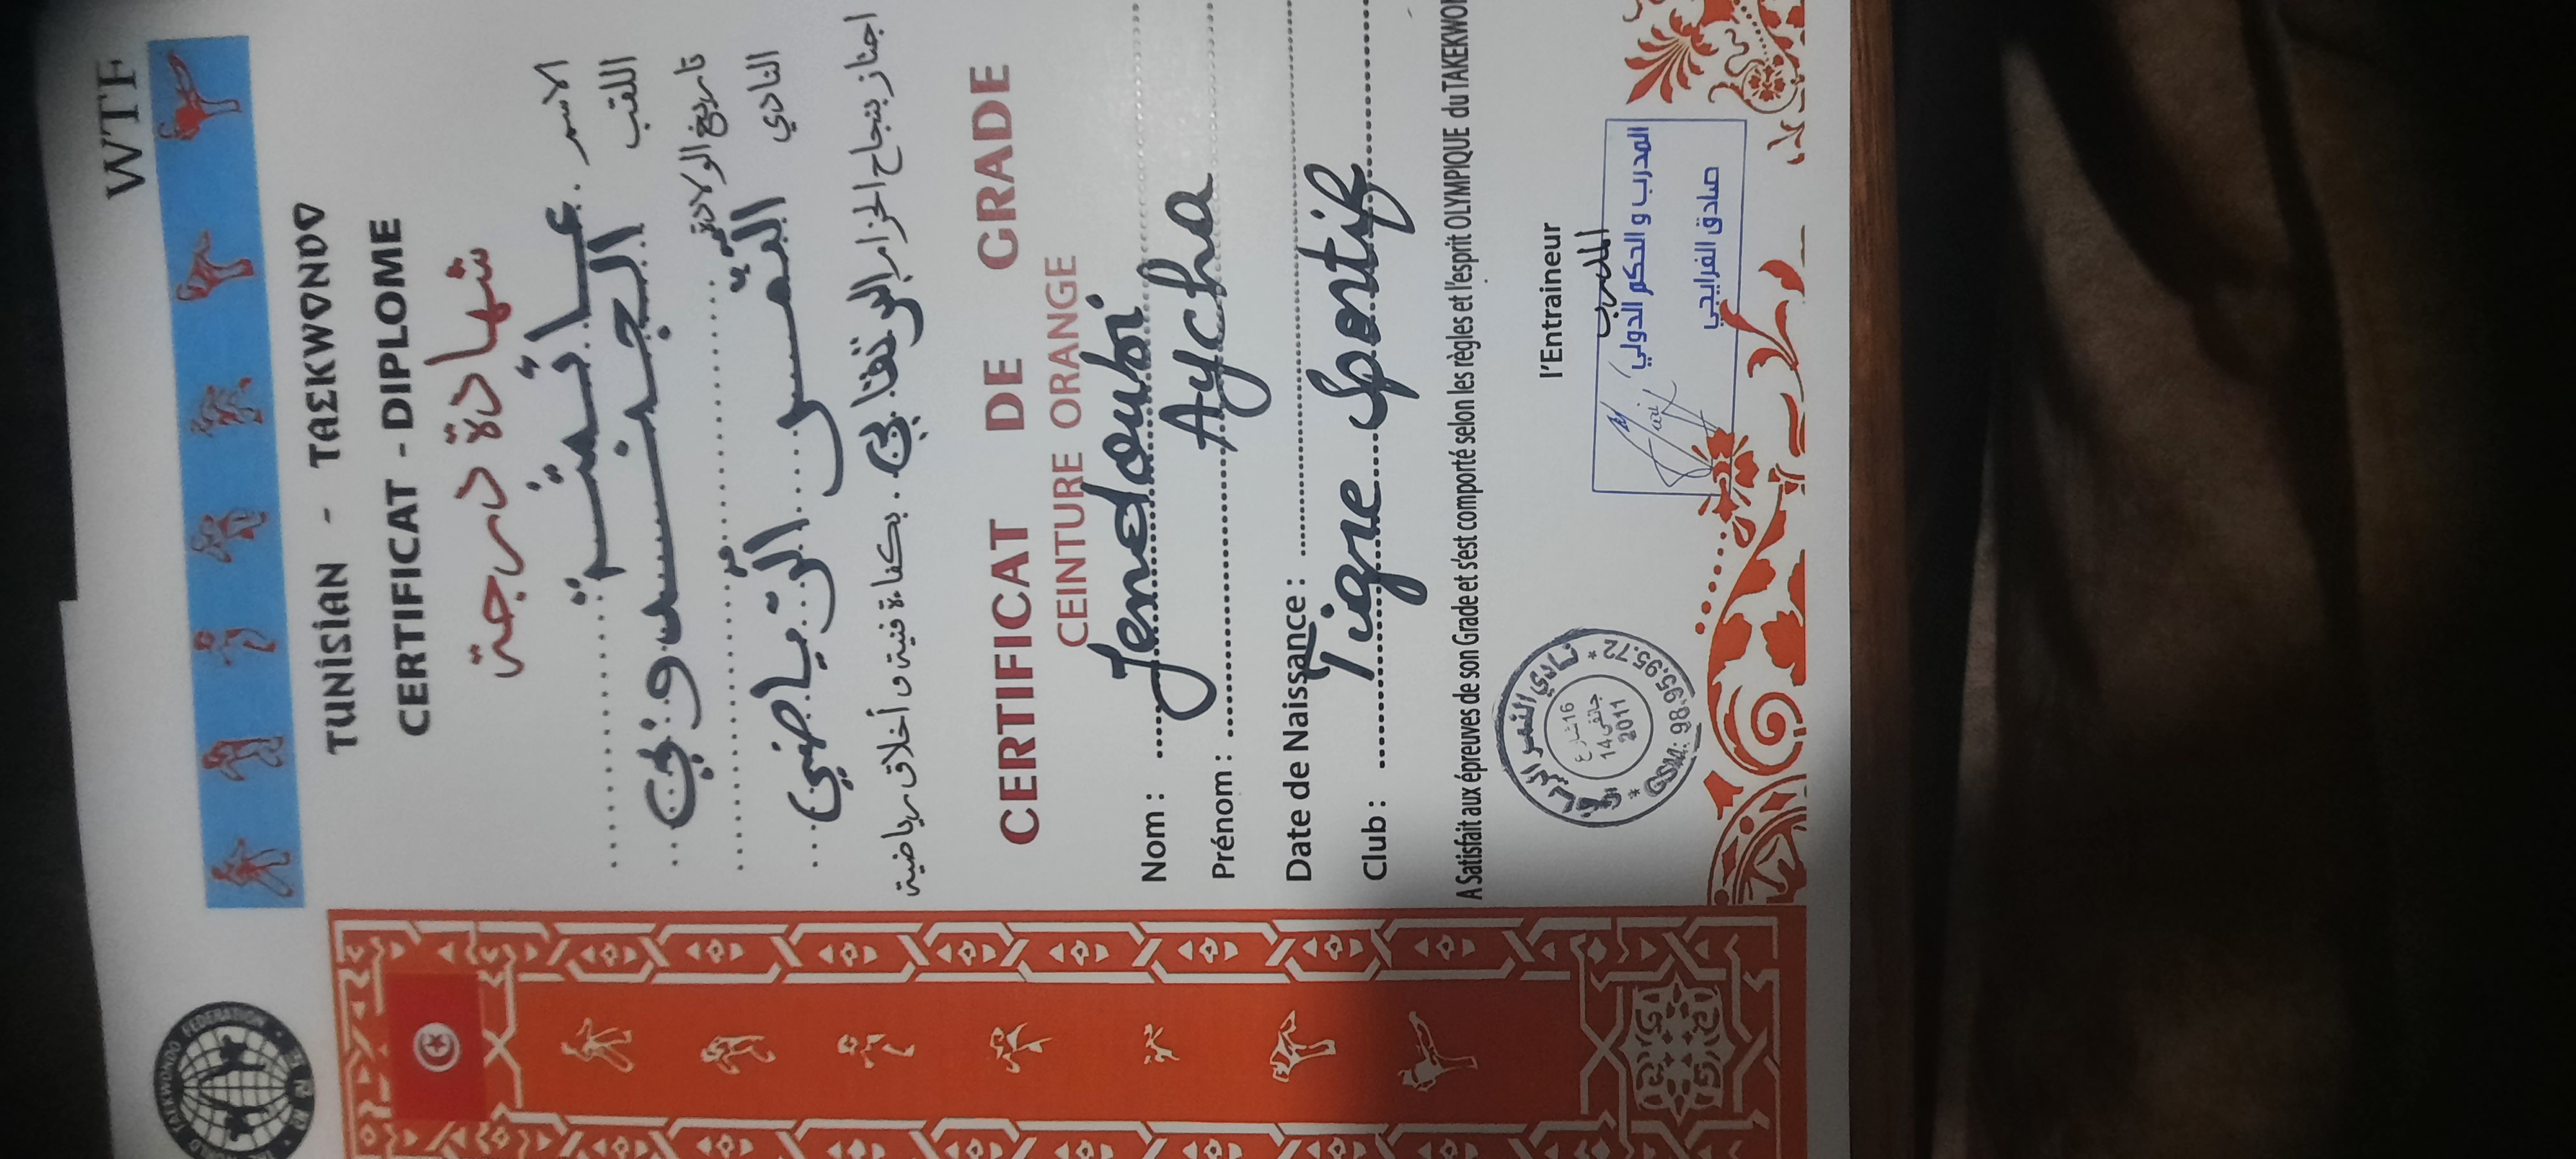 WTF
TUNISIAN - TAEKWONDO
CERTIFICAT - DIPLOME
شهادة درجة
الاسم عائشة
اللقب الجندوبي
تاريخ الولادة
النادي النمر الرياضي
اجتاز بنجاح الحزام البرتقالي بكفاءة فنية و أخلاق رياضية
CERTIFICAT DE GRADE
CEINTURE ORANGE
Nom : Jendoubi
Prénom : Aycha
Date de Naissance :
Club : Tigre Sportif
A Satisfait aux épreuves de son Grade et s'est comporté selon les règles et l'esprit OLYMPIQUE du
l'Entraineur
المدرب
المدرب و الحكم الدولي
صادق الفرايجي
16 شارع
14 جانفي
2011
GSM: 98.95.95.72
TAEKWONDO FEDERATION